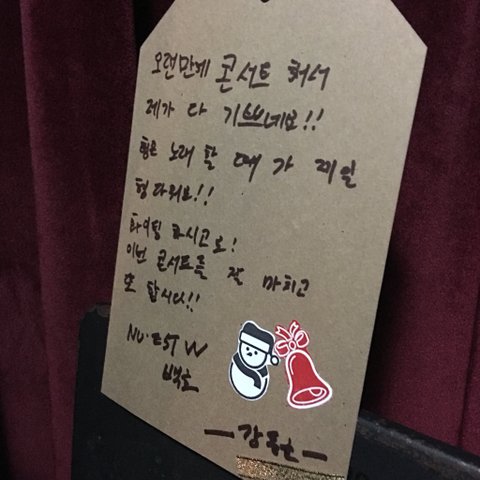 오랜만에 콘서트 해서
제가 다 기쁘네요!!
형은 노래 할 때가 제일
형 다워요!!
화이팅 하시고요!
이번 콘서트를 잘 마치고
또 합시다!!
NU'EST W
백호
—강동호—